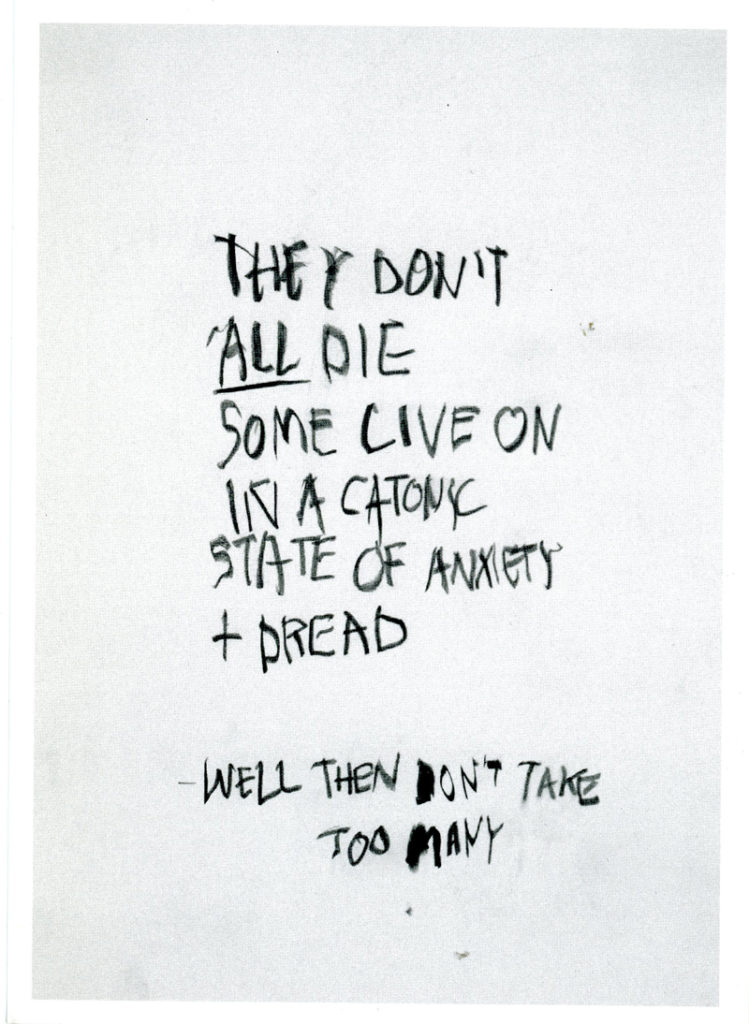 THEY DON'T
ALL DIE
SOME LIVE ON
IN A CATONIC
STATE OF ANXIETY
+ DREAD
- WELL THEN DON'T TAKE
TOO MANY